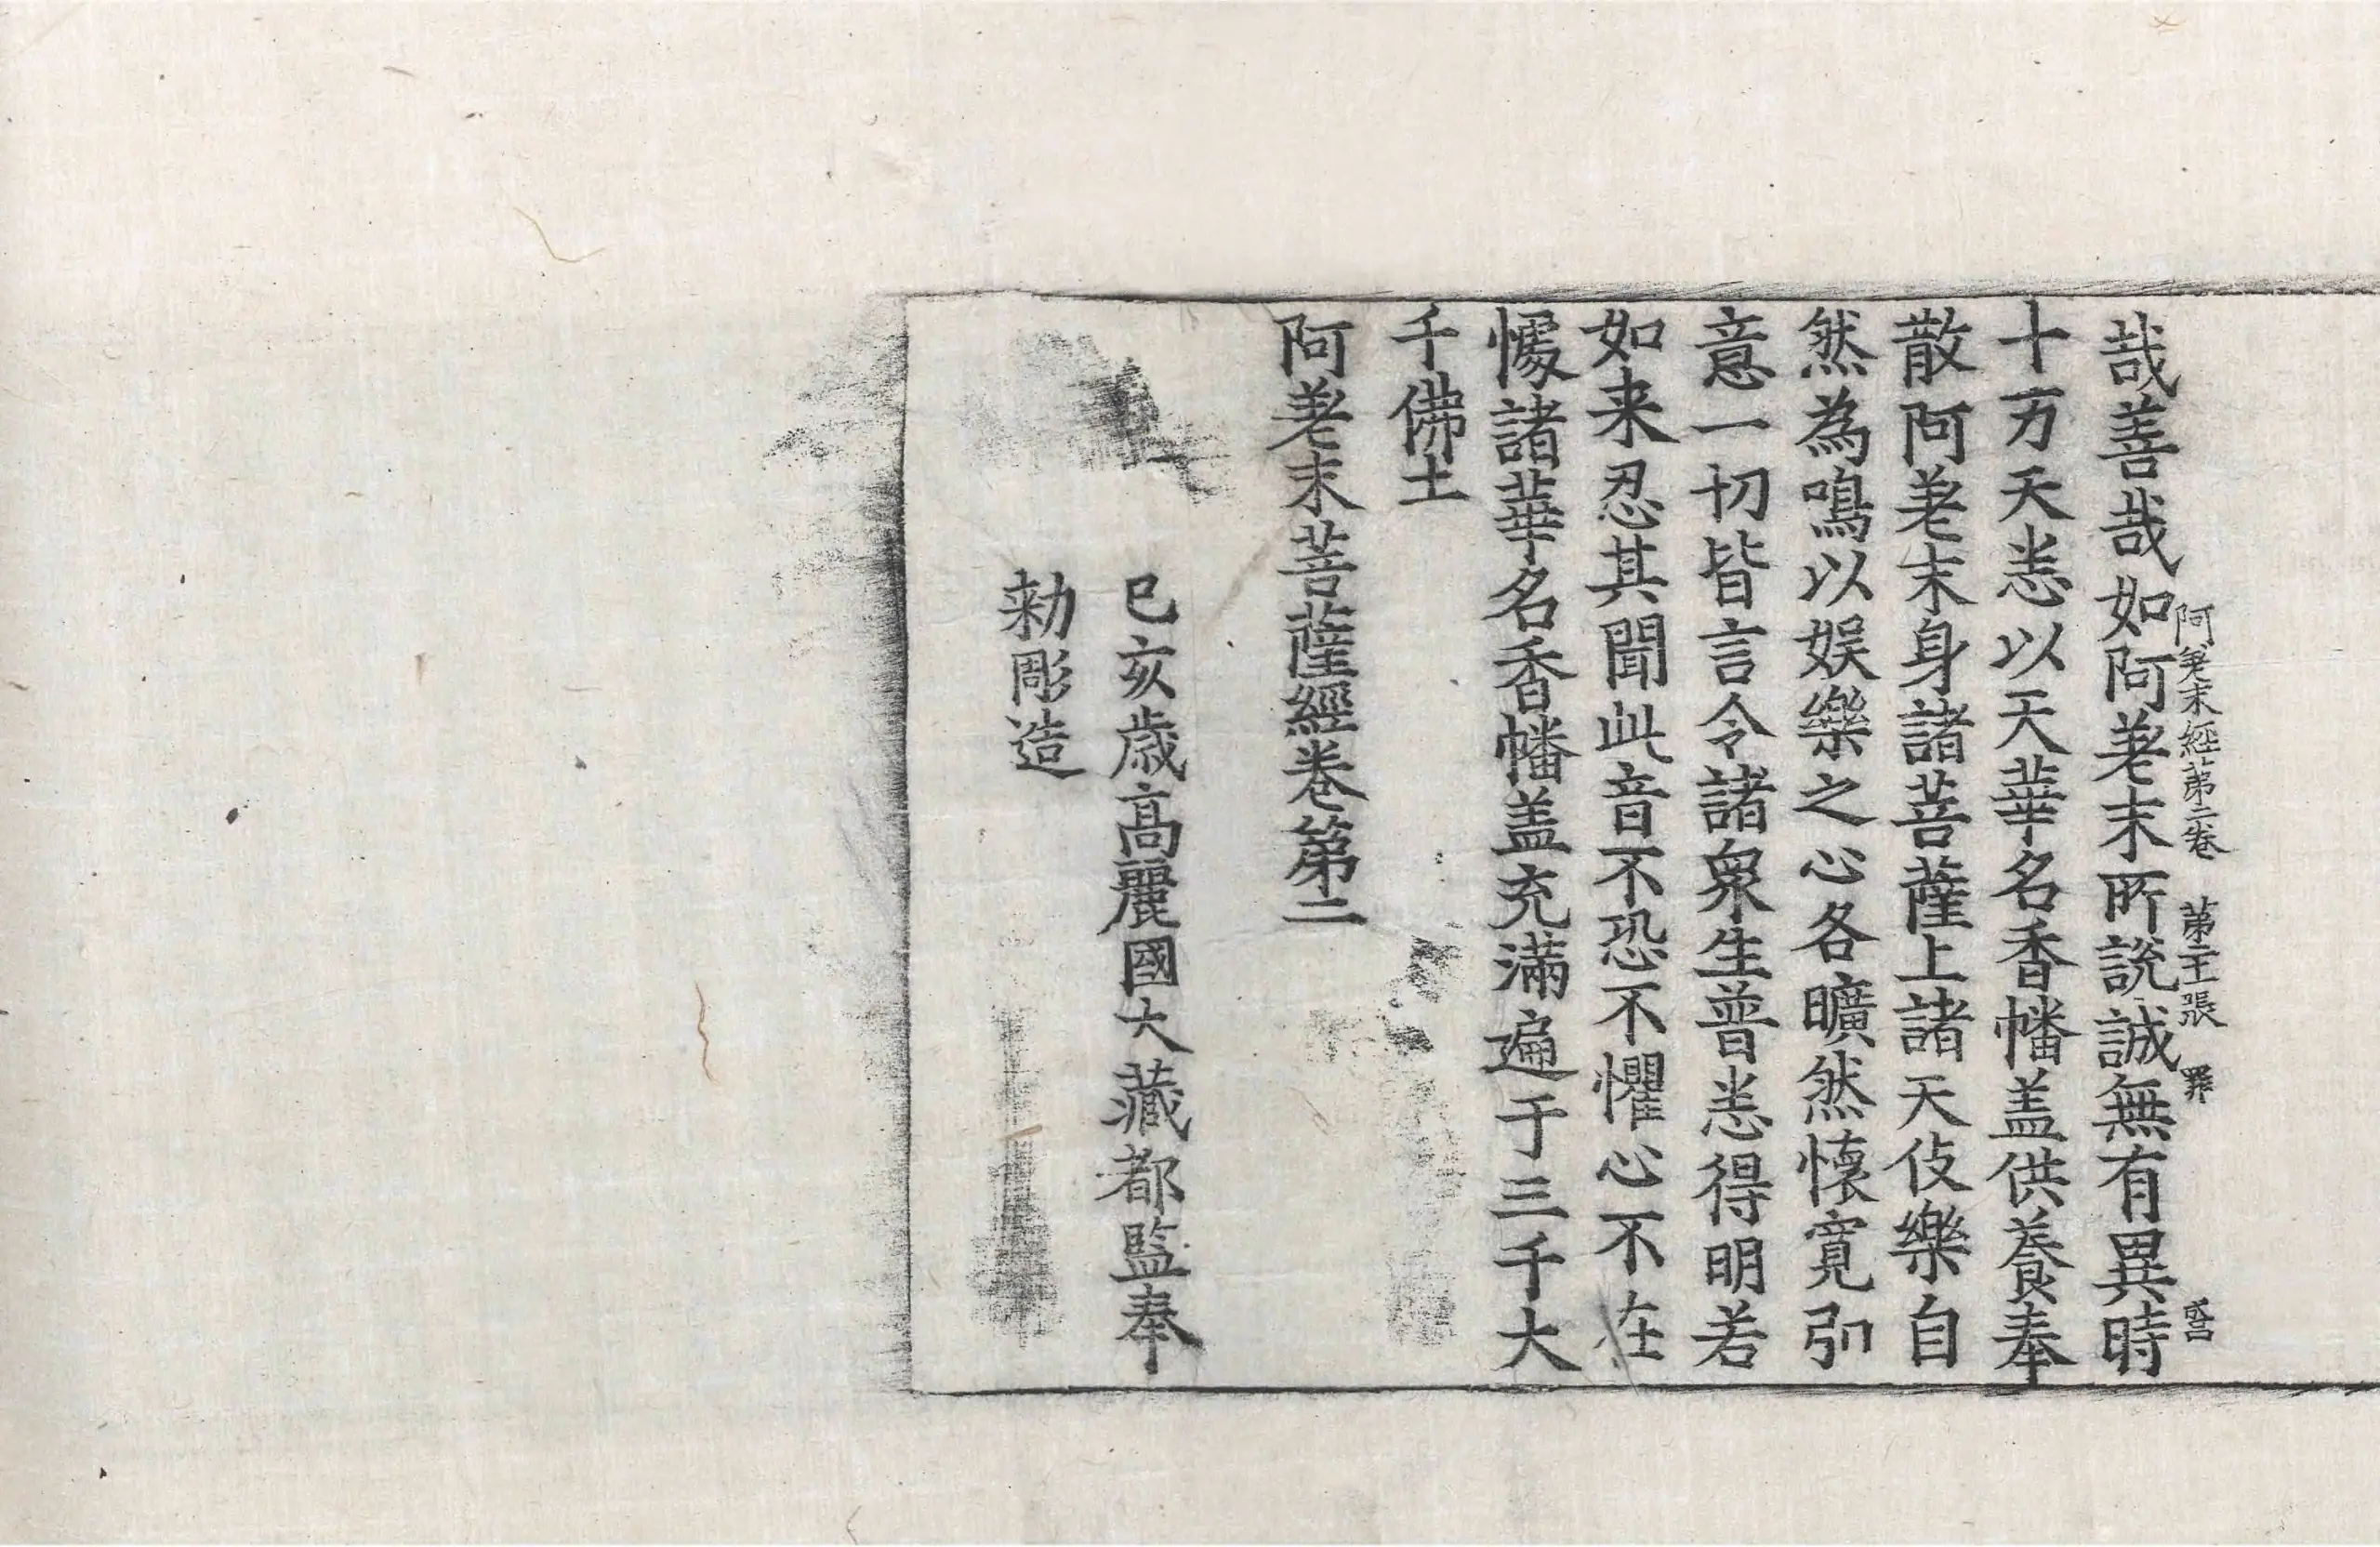 阿差末經第二卷 第二十張 罪
哉善哉如阿差末所說誠無有異時
十方天悉以天華名香幡盖供養奉
散阿差末身諸菩薩上諸天伎樂自
然為鳴以娱樂之心各曠然懷寬弘
意一切皆言令諸衆生普悉得明若
如来忍其聞此音不恐不懼心不在
懅諸華名香幡盖充滿遍于三千大
千佛土
阿差末菩薩經卷第二
己亥歳高麗國大藏都監奉
勑彫造